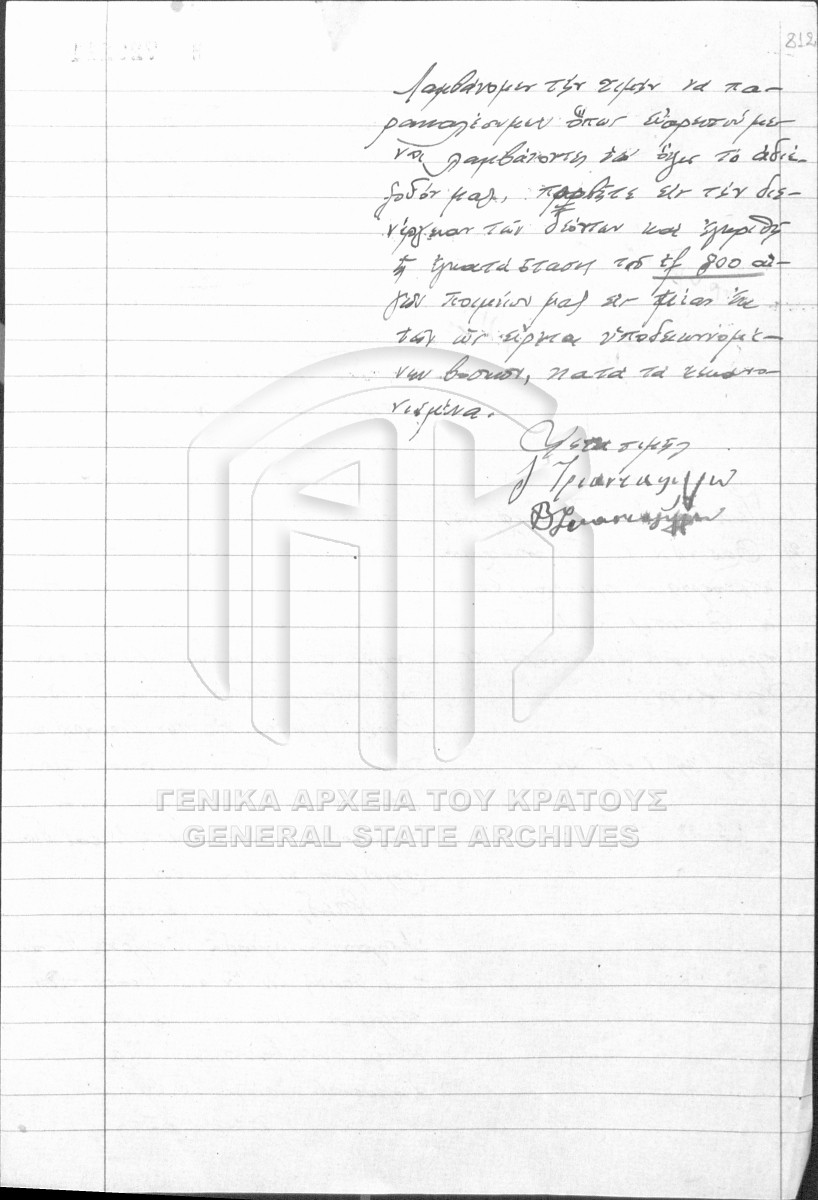 812
Λαμβάνομεν τήν τιμήν νά πα-
ρακαλέσωμεν ὅπως εὐαρεστούμε-
νοι λαμβάνοντες ὑπ' ὄψιν τό ἀδιέ-
ξοδόν μας, προβῆτε εἰς τήν διε-
νέργειαν τῶν δεόντων καί ἐγκριθῇ
ἡ ἐγκατάστασις τοῦ ἐξ 800 αἰ-
γῶν ποιμνίου μας εἰς μίαν ἐκ
τῶν ὡς εἴρηται ὑποδεικνυομέ-
νων βοσκῶν, κατά τά κεκανο-
νισμένα.
Μετά τιμῆς
Τριανταφύλλου
Β Τριανταφύλλου
ΓΕΝΙΚΑ ΑΡΧΕΙΑ ΤΟΥ ΚΡΑΤΟΥΣ
GENERAL STATE ARCHIVES